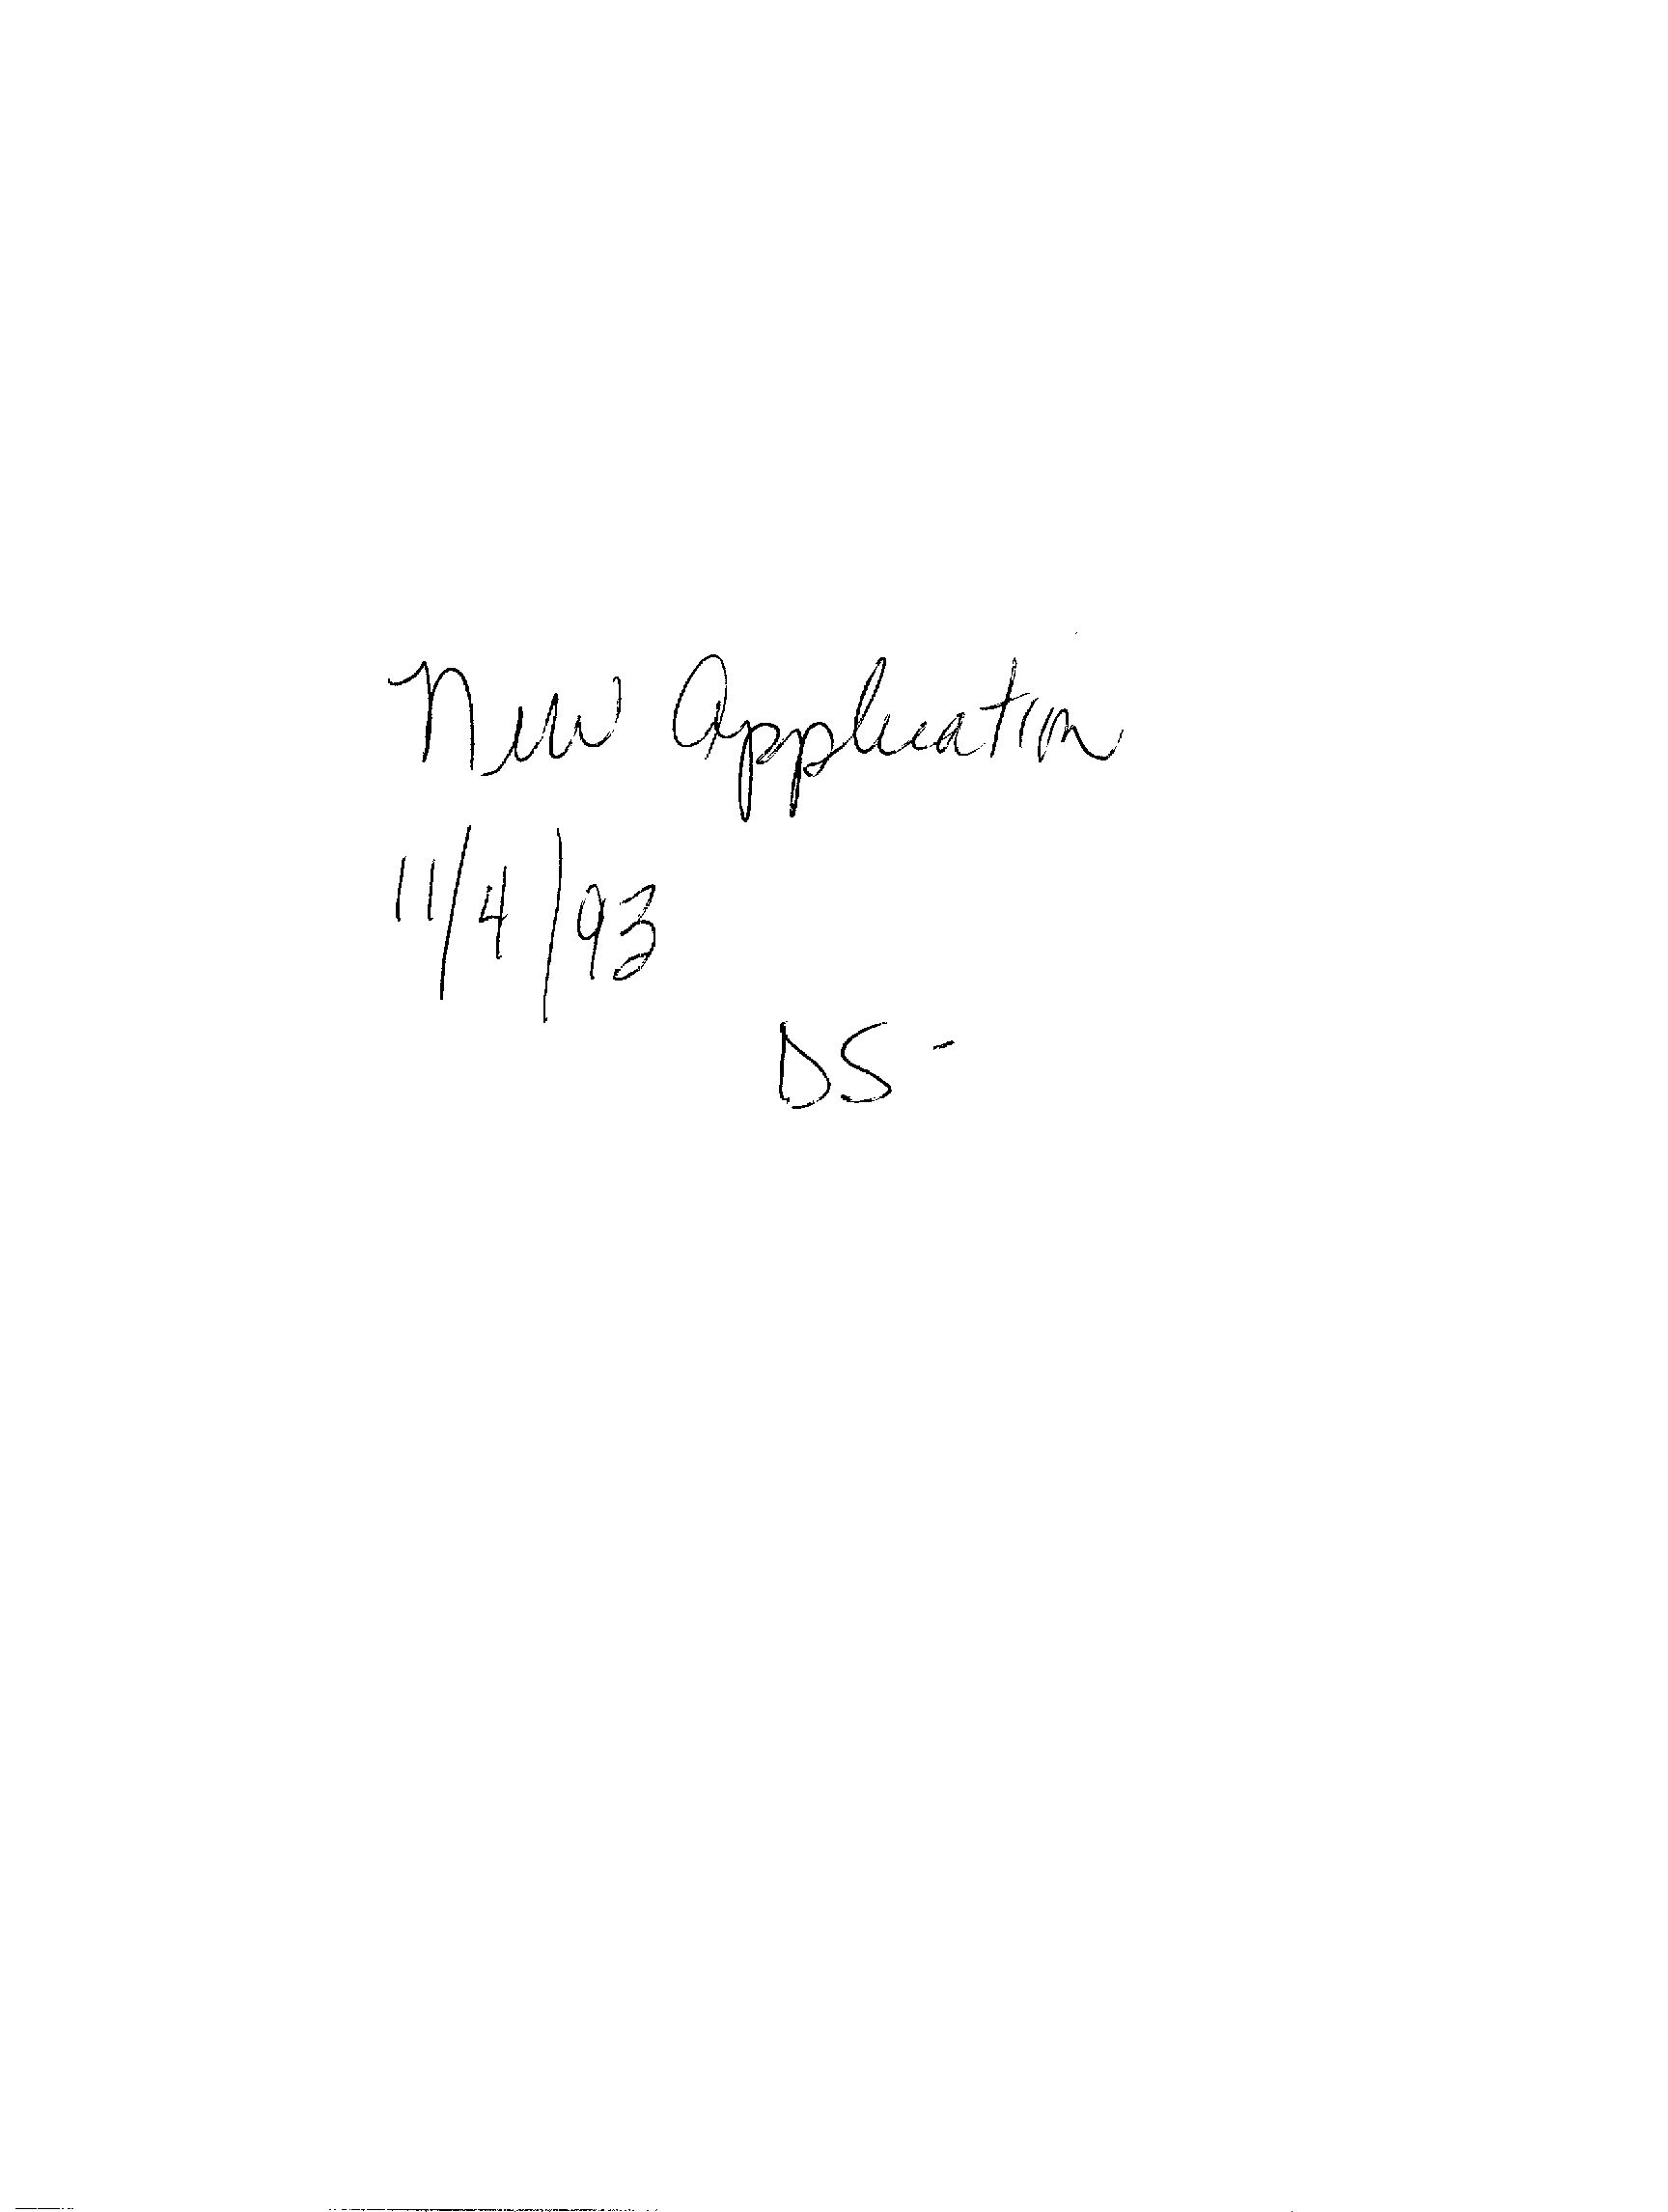 New Application
11/4/93
DS-